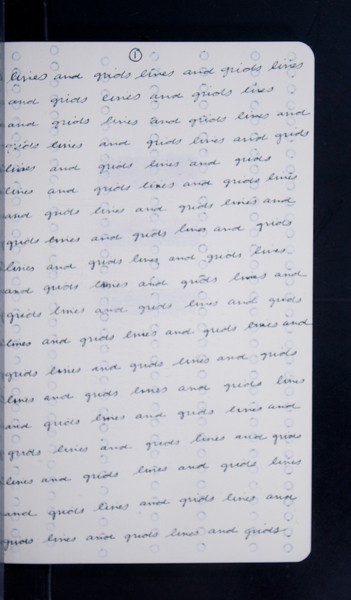 1
lines and grids lines and grids lines
and grids lines and grids lines
and grids lines and grids lines and
grids lines and grids lines and grids
lines and grids lines and grids
lines and grids lines and grids lines
and grids lines and grids lines and
grids lines and grids lines and grids
lines and grids lines and grids lines
and grids lines and grids lines and
grids lines and grids lines and grids
lines and grids lines and grids lines and
grids lines and grids lines and grids
lines and grids lines and grids lines
and grids lines and grids lines and
grids lines and grids lines and grids
lines and grids lines and grids lines
and grids lines and grids lines and
grids lines and grids lines and grids